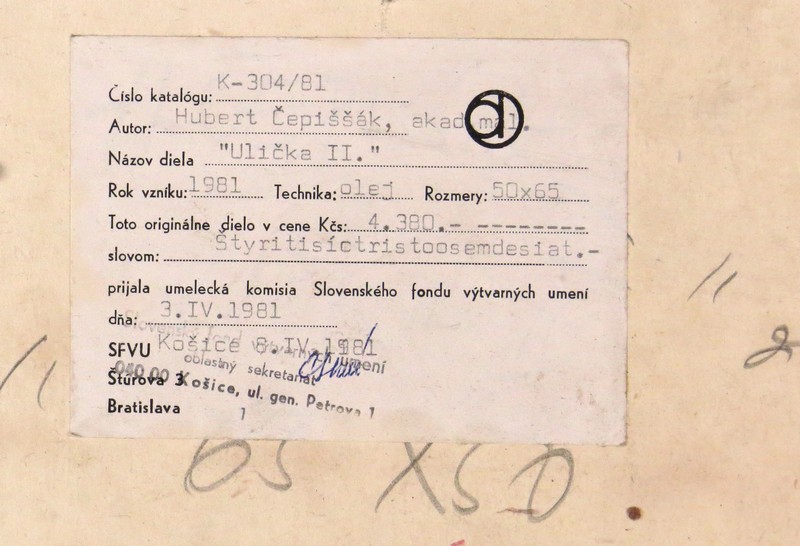 Číslo katalógu: K-304/81
Autor: Hubert Čepiššák, akad. mal.
Názov diela "Ulička II."
Rok vzniku: 1981 Technika: olej Rozmery: 50x65
Toto originálne dielo v cene Kčs: 4.380.- --------
slovom: Štyritisíctristoosemdesiat.-
prijala umelecká komisia Slovenského fondu výtvarných umení
dňa: 3.IV.1981
Slovenský fond výtvarných umení
SFVU Košice 8.IV.1981
oblastný sekretariát
Štúrova 3
040 00 Košice, ul. gen. Petrova 1
Bratislava
1
65 X 50